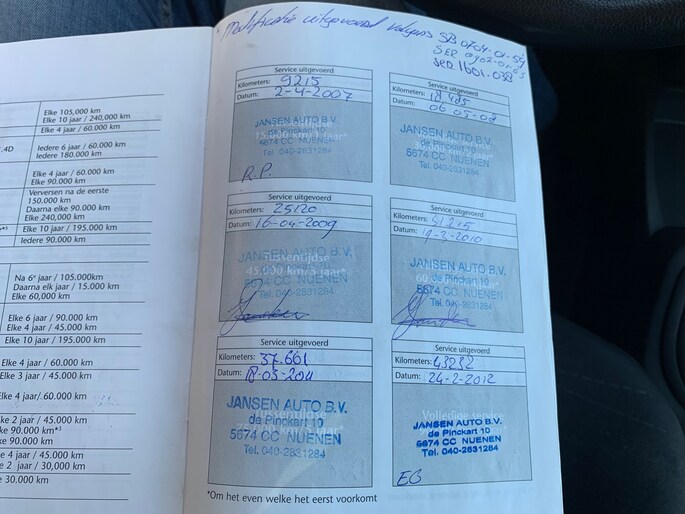 Elke 105,000 km
Elke 10 jaar / 240,000 km
Elke 4 jaar / 60.000 km
.4D
Iedere 6 jaar / 60.000 km
Iedere 180.000 km
Elke 4 jaar / 60.000 km
Elke 90.000 km
Verversen na de eerste
150.000 km
Daarna elke 90.000 km
Elke 240,000 km
Elke 10 jaar / 195.000 km
Iedere 90.000 km
Na 6e jaar / 105.000km
Daarna elk jaar / 15.000 km
Elke 60,000 km
Elke 6 jaar / 90.000 km
Elke 4 jaar / 45.000 km
Elke 10 jaar / 195.000 km
Elke 4 jaar / 60.000 km
Elke 3 jaar / 45.000 km
Elke 4 jaar/.60.000 km
ke 2 jaar / 45.000 km
ke 90.000 km*3
ke 90.000 km
e 4 jaar / 45.000 km
e 2 jaar / 30,000 km
e 30.000 km
Modificatie uitgevoerd volgens SB 0704-01-54
SER
SER 1601-038
Service uitgevoerd
Kilometers: 9215
Datum: 2-4-2007
15.000 km/1 jaar*
JANSEN AUTO B.V.
de Pinckart 10
5674 CC NUENEN
Tel. 040-2831284
R.P.
Service uitgevoerd
Kilometers: 18.485
Datum: 06-05-08
JANSEN AUTO B.V.
de Pinckart 10
5674 CC NUENEN
Tel. 040-2831284
Service uitgevoerd
Kilometers: 25120
Datum: 16-04-2009
Tussentijdse
45.000 km/3 jaar*
JANSEN AUTO B.V.
5674 CC NUENEN
Tel. 040-2831284
Service uitgevoerd
Kilometers: 31215
Datum: 19-3-2010
JANSEN AUTO B.V.
de Pinckart 10
5674 CC NUENEN
Tel. 040-2831284
Service uitgevoerd
Kilometers: 37.661
Datum: 18-03-2011
Tussentijdse
JANSEN AUTO B.V.
de Pinckart 10
5674 CC NUENEN
Tel. 040-2831284
Service uitgevoerd
Kilometers: 43232
Datum: 24-2-2012
Volledige service
JANSEN AUTO B.V.
de Pinckart 10
5674 CC NUENEN
Tel. 040-2831284
EB
*Om het even welke het eerst voorkomt